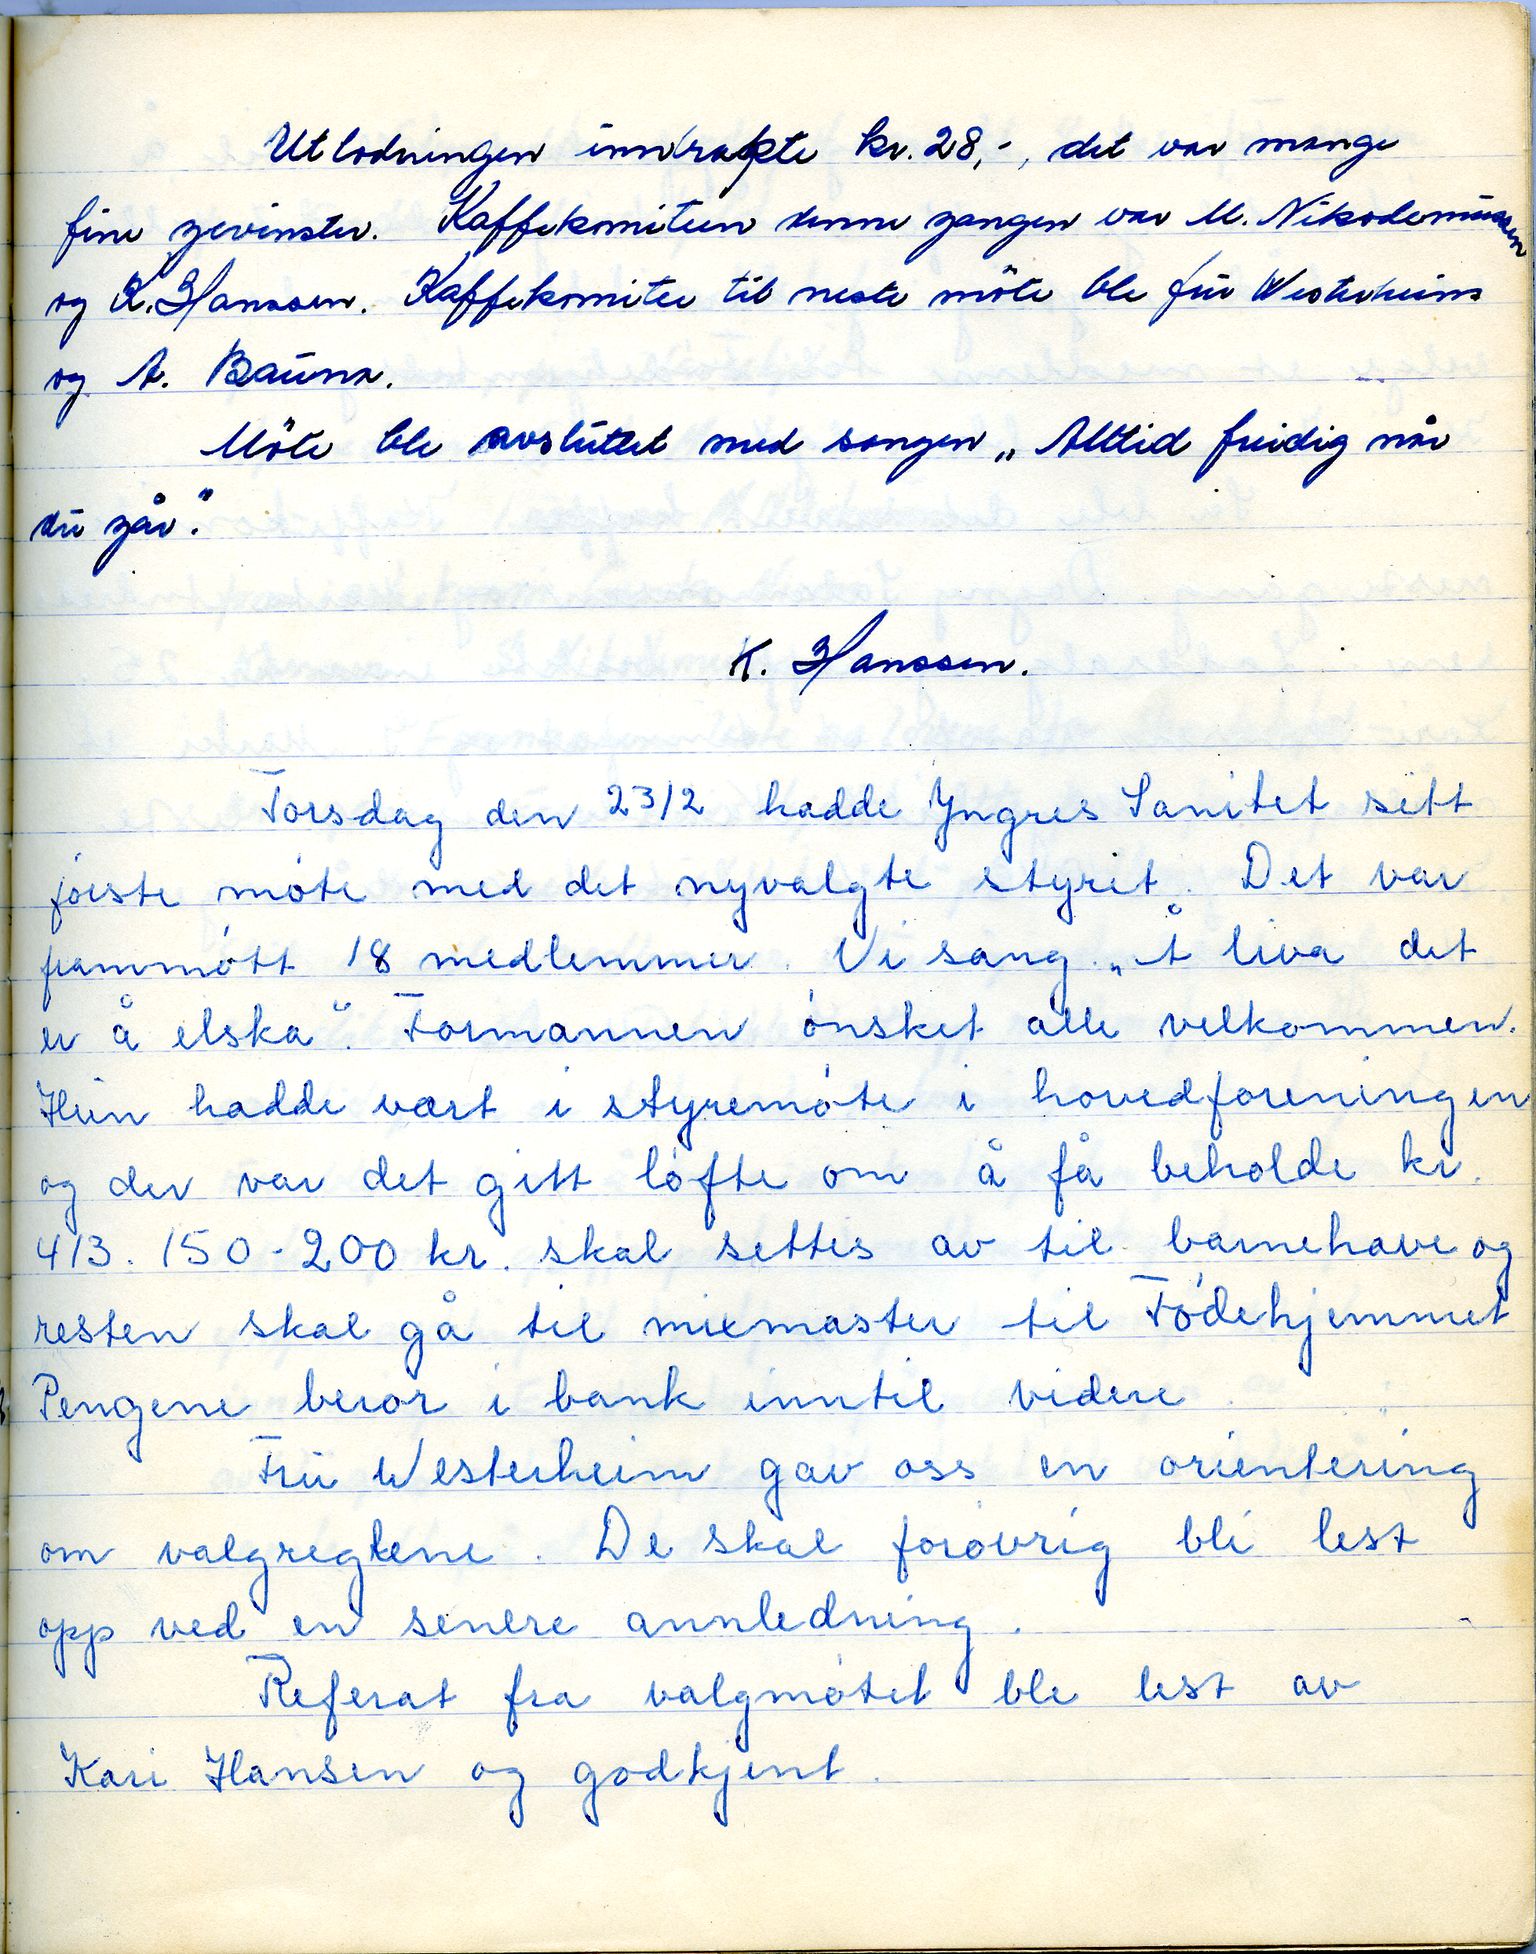 Utlodningen innbrakte kr. 28,-, det var mange
fine gevinster. Kaffekomiteen denne gangen var M. Nikodemussen
og K. Hanssen. Kaffekomitee til neste möte ble fru Westerheim
og A. Bauna.
Möte ble avsluttet med sangen „Alltid freidig når
du går".
K. Hanssen.
Torsdag den 23/2 hadde Yngres Sanitet sitt
første møte med det nyvalgte styret. Det var
frammøtt 18 medlemmer. Vi sang „Å leva det
er å elska". Formannen ønsket alle velkommen.
Hun hadde vært i styremøte i hovedforeningen
og der var det gitt løfte om å få beholde kr.
413. 150-200 kr. skal settes av til barnehave og
resten skal gå til mixmaster til Fødehjemmet
Pengene beror i bank inntil videre.
Fru Westerheim gav oss en orientering
om valgreglene. De skal forøvrig bli lest
opp ved en senere annledning.
Referat fra valgmøtet ble lest av
Kari Hansen og godkjent.